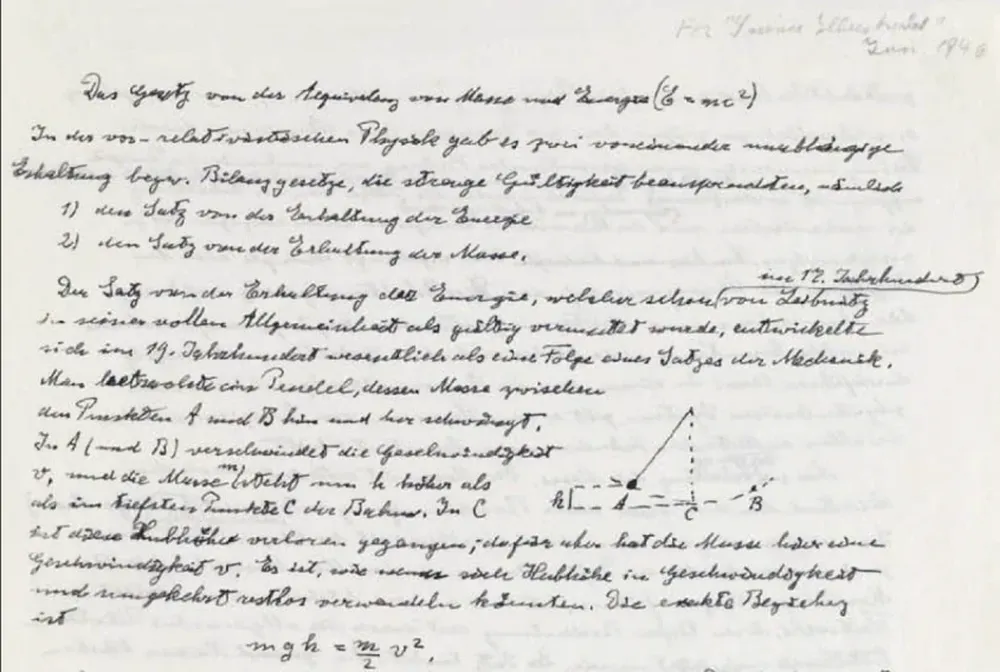 For "Science Illustrated"
June 1946
Das Gesetz von der Aequivalenz von Masse und Energie (E = mc²)
In der vor-relativistischen Physik gab es zwei voneinander unabhängige
Erhaltung bezw. Bilanzgesetze, die strenge Gültigkeit beanspruchten, nämlich
1) den Satz von der Erhaltung der Energie
2) den Satz von der Erhaltung der Masse.
im 17. Jahrhundert
Der Satz von der Erhaltung der Energie, welcher schon von Leibnitz
in seiner vollen Allgemeinheit als gültig vermutet wurde, entwickelte
sich im 19. Jahrhundert wesentlich als eine Folge eines Satzes der Mechanik.
Man betrachte ein Pendel, dessen Masse zwischen
den Punkten A und B hin und her schwingt.
In A (und B) verschwindet die Geschwindigkeit
v, und die Masse m steht um h höher als
als im tiefsten Punkte C der Bahn. In C
ist diese Hubhöhe verloren gegangen; dafür aber hat die Masse hier eine
Geschwindigkeit v. Es ist, wie wenn sich Hubhöhe in Geschwindigkeit
und umgekehrt restlos verwandeln könnten. Die exakte Beziehung
ist
mgh = m/2 v²,
h A C B